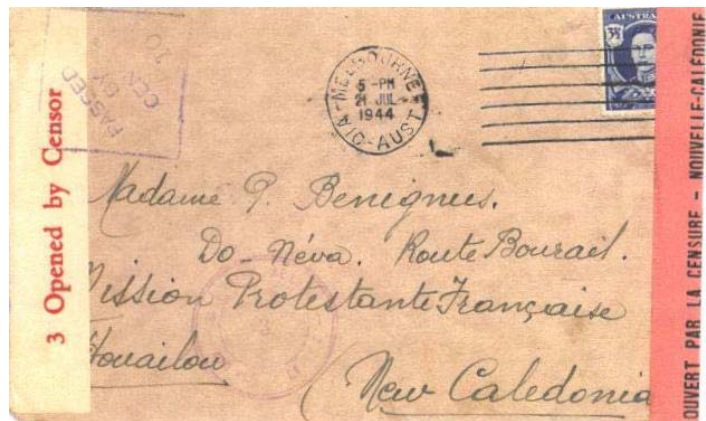 3 Opened by Censor
PASSED
BY
CEN
MELBOURNE
5 - PM
21 JUL
1944
VIC-AUST
AUSTRA
3½
OUVERT PAR LA CENSURE - NOUVELLE-CALÉDONIE
Madame P. Benignus.
Do-Néva. Route Bourail.
Mission Protestante Française
Houailou
New Caledonia